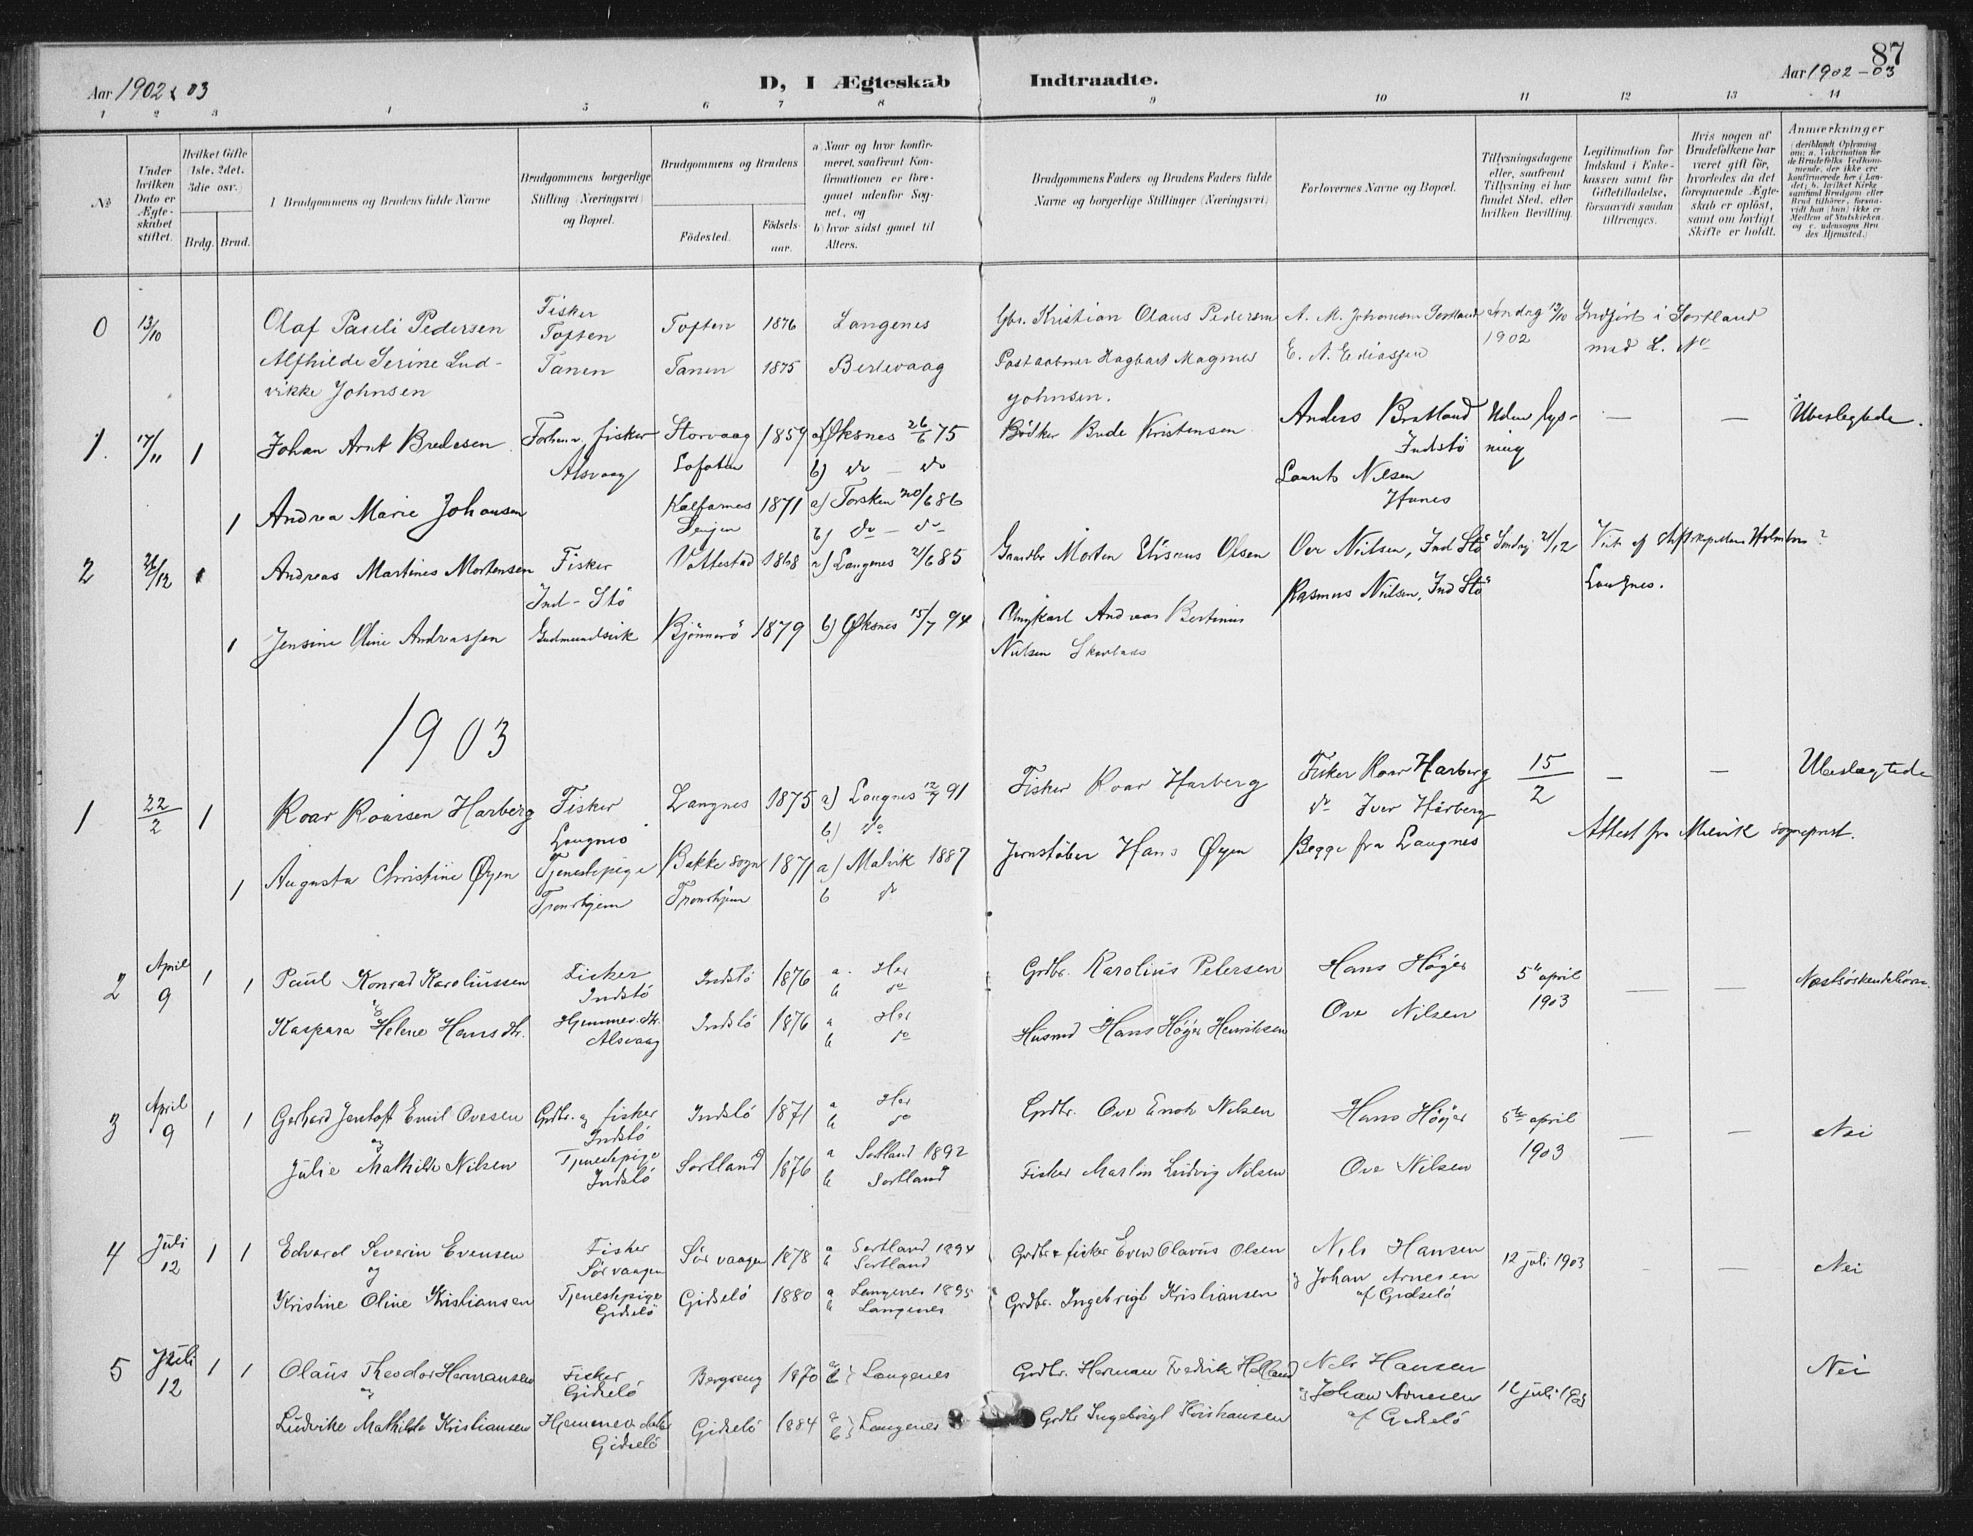 87
Aar 1902 & 03
D, I Ægteskab Indtraadte.
Aar 1902-03
1 2 3 4 5 6 7 8 9 10 11 12 13 14
№
Under hvilken Dato er Ægteskabet stiftet.
Hvilket Gifte (1ste, 2det, 3die osv.)
Brdg. Brud.
Brudgommens og Brudens fulde Navne
Brudgommens borgerlige Stilling (Næringsvei) og Bopæl.
Brudgommens og Brudens
Fødested.
Fødselsaar.
a) Naar og hvor konfirmeret, saafremt Konfirmationen er foregaaet udenfor Sognet, og
b) hvor sidst gaaet til Alters.
Brudgommens Faders og Brudens Faders fulde Navne og borgerlige Stillinger (Næringsvei)
Forlovernes Navne og Bopæl.
Tillysningsdagene eller, saafremt Tillysning ei har fundet Sted, efter hvilken Bevilling.
Legitimation for Indskud i Enkekassen samt for Giftetilladelse, forsaavidt saadan tiltrænges.
Hvis nogen af Brudefolkene har været gift før, hvorledes da det foregaaende Ægteskab er opløst, samt om lovligt Skifte er holdt.
Anmærkninger
0 13/10 Olaf Pauli Pedersen Fisker Toften Toften 1876 Langenes Gbr. Kristian Olaus Pedersen A. M. Johansen Sortland Søndag 12/10 1902 Indført i Sortland
Alfhilde Serine Ludvikke Johnsen Tanen Tanen 1875 Berlevaag Postaabner Hagbart Magnus Johnsen. E. A. Ediassen
1. 17/11 1 Johan Arnt Bredesen fisker Alsvaag Storvaag Lofoten 1859 a) Øksnes 26/6 75 b) do - do Bødker Brede Kristensen Anders Bratland Indstö Uden lysning — — Ubeslegtede.
1 Andrea Marie Johansen Kalfarnes Senjen 1871 a) Torsken 20/6 86 b) do - do Laurits Nilsen
2 26/12 1 Andreas Martines Mortensen Fisker Ind-Stö Vottestad 1868 a) Langenes 21/6 85 Gaardbr Morten Eliseus Olsen Ove Nilsen, Ind Stö Søndag 21/12
1 Jensine Oline Andreassen Bjönnerö 1879 b) Øksnes 15/7 94 Ungkarl Andreas Bertinus Nilsen Rasmus Nilsen, Ind Stö Langnes.
1903
1 22/2 1 Roar Roarsen Harberg Fisker Langnes Langnes 1875 a) Langnes 12/7 91 b) do Fisker Roar Harberg Fisker Roar Harberg 15/2 — — Ubeslægtede
do Iver Harberg
1 Augusta Christine Øyen Tjenestepige Tronhjem Bakke sogn Tronhjem 1871 a) Malvik 1887 b do Jernstøber Hans Øyen Begge fra Langnes Attest fra Malvik sogneprest.
2 April 9 1 1 Paul Konrad Karoliussen Fisker Indstö Indstö 1876 a. Her b do Grdbr. Karolius Petersen Hans Höyer 5te april 1903 — — Næstsøskendebørn.
og
Kaspara Helene Hansdtr. Hjemmev. dtr. Alsvaag Indstö 1876 a Her b do Husmd Hans Höyer Henriksen Ove Nilsen
3 April 9 1 1 Gerhard Jentoft Emil Ovesen Grdbr. og fisker Indstö Indstö 1871 a Her b do Grdbr. Ove Enok Nilsen Hans Höyer 5te april 1903 — — Nei
og
Julie Mathilde Nilsen Tjenestepige Indstö Sortland 1876 a Sortland 1892 b Sortland Fisker Martin Ludvig Nilsen Ove Nilsen
4 Juli 12 1 1 Edvard Severin Evensen Fisker Sörvaagen Sörvaagen 1878 a Sortland 1894 b Sortland Grdbr & fisker Even Olavus Olsen Nils Hansen 12 juli 1903 - — Nei
og
Kristine Oline Kristiansen Tjenestepige Gidselö Gidselö 1880 a Langenes 1895 b Langenes Grdbr. Ingebrigt Kristiansen og Johan Arnesen af Gidselö
5 Juli 12 1 1 Olaus Theodor Hermansen Fisker Gidselö Bergseng 1870 a b Langenes Grdbr. Herman Fredrik Helland Nils Hansen 12 juli 1903 Nei
og
Ludvike Mathilde Kristiansen Hjemmev. datter Gidselö Gidselö 1884 a b Langenes Grdbr Ingebrigt Kristiansen og Johan Arnesen af Gidselö